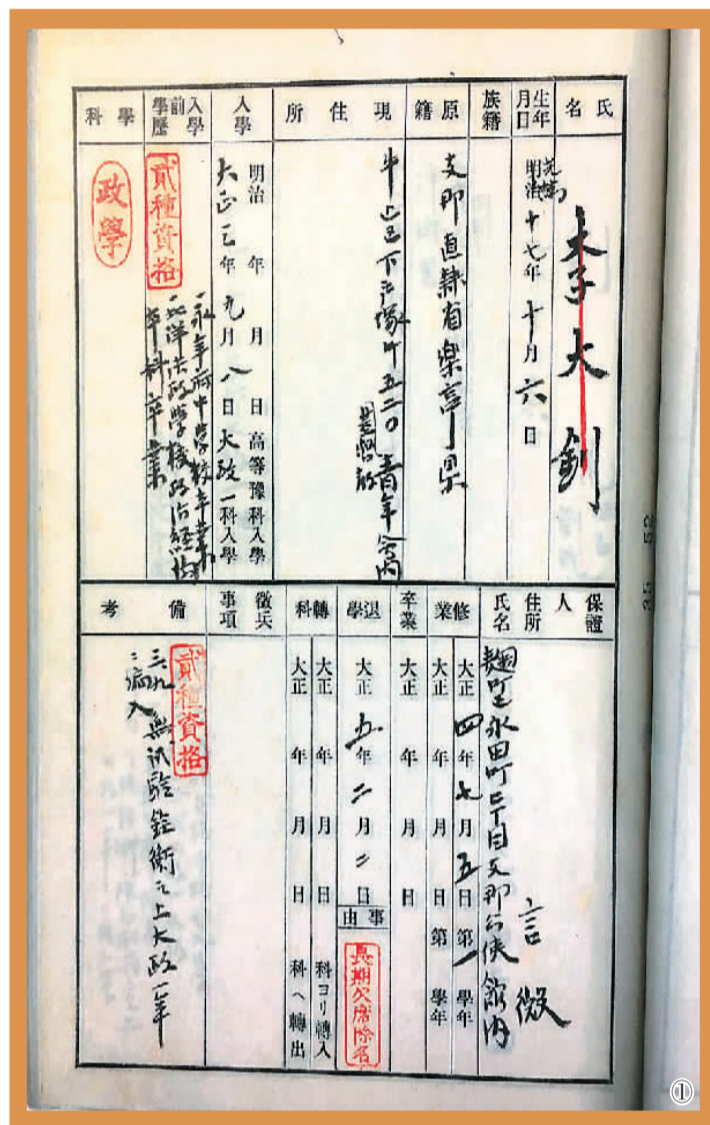 氏名
李大釗
生年月日
光緒
明治十七年十月六日
族籍
原籍
支那直隷省楽亭県
現住所
牛込区下戸塚町五二〇 青年会内
入學
明治 年 月 日高等豫科入學
大正三年九月八日大政一科入學
入學前學歷
貳種資格
永年府中学校卒業
北洋法政学校政治経済
本科卒業
學科
政學
保證人
住所
氏名
麹町区永田町二丁目支那公使館内
言微
修業
大正四年七月五日第一學年
大正 年 月 日第 學年
卒業
大正 年 月 日
退學
大正五年二月二日
事由
長期欠席除名
轉科
大正 年 月 日 科ヨリ轉入
大正 年 月 日 科ヘ轉出
徵兵事項
備考
貳種資格
三、九、無試驗銓衡之上大政一年
ニ編入
①